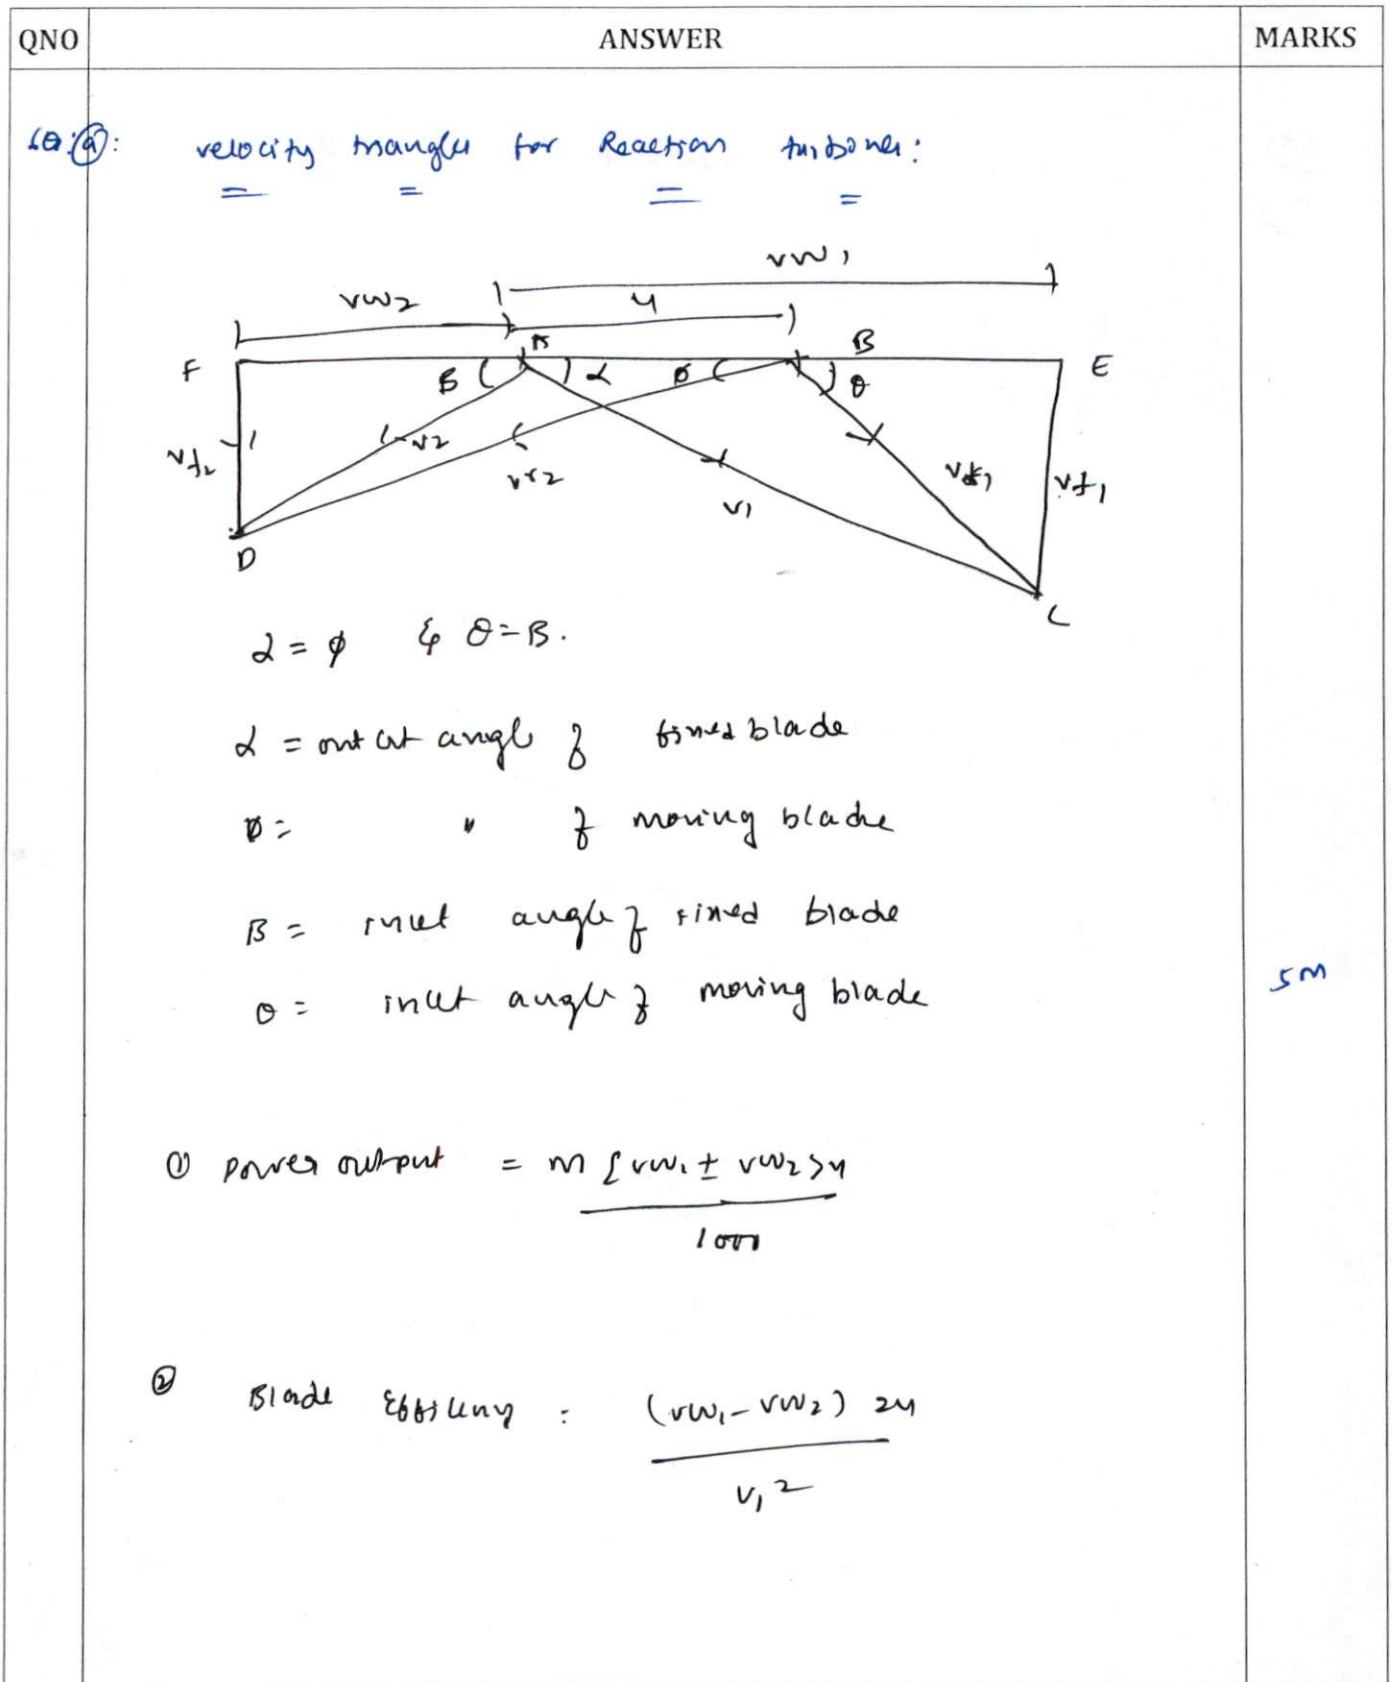 QNO ANSWER MARKS
10.(a): velocity triangles for Reaction turbines:
vw1
vw2 u
F β A α ø B θ E
vf2 v2 vr2 v1 vr1 vf1
D C
α = ø & θ = β.
α = outlet angle of fixed blade
ø = " of moving blade
β = inlet angle of fixed blade
θ = inlet angle of moving blade
5M
① power output = m {vw1 ± vw2} u
1000
② Blade Efficieny : (vw1 - vw2) 2u
v1 2